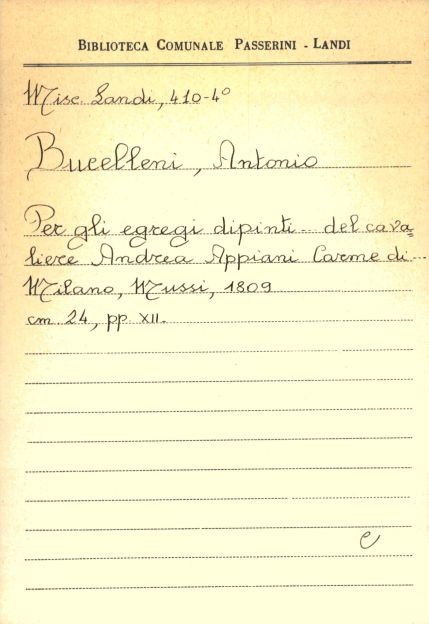 BIBLIOTECA COMUNALE PASSERINI - LANDI
Misc. Landi, 410-4°
Bucelleni, Antonio
Per gli egregi dipinti... del cava=
liere Andrea Appiani Carme di...
Milano, Mussi, 1809
cm 24, pp. XII.
e